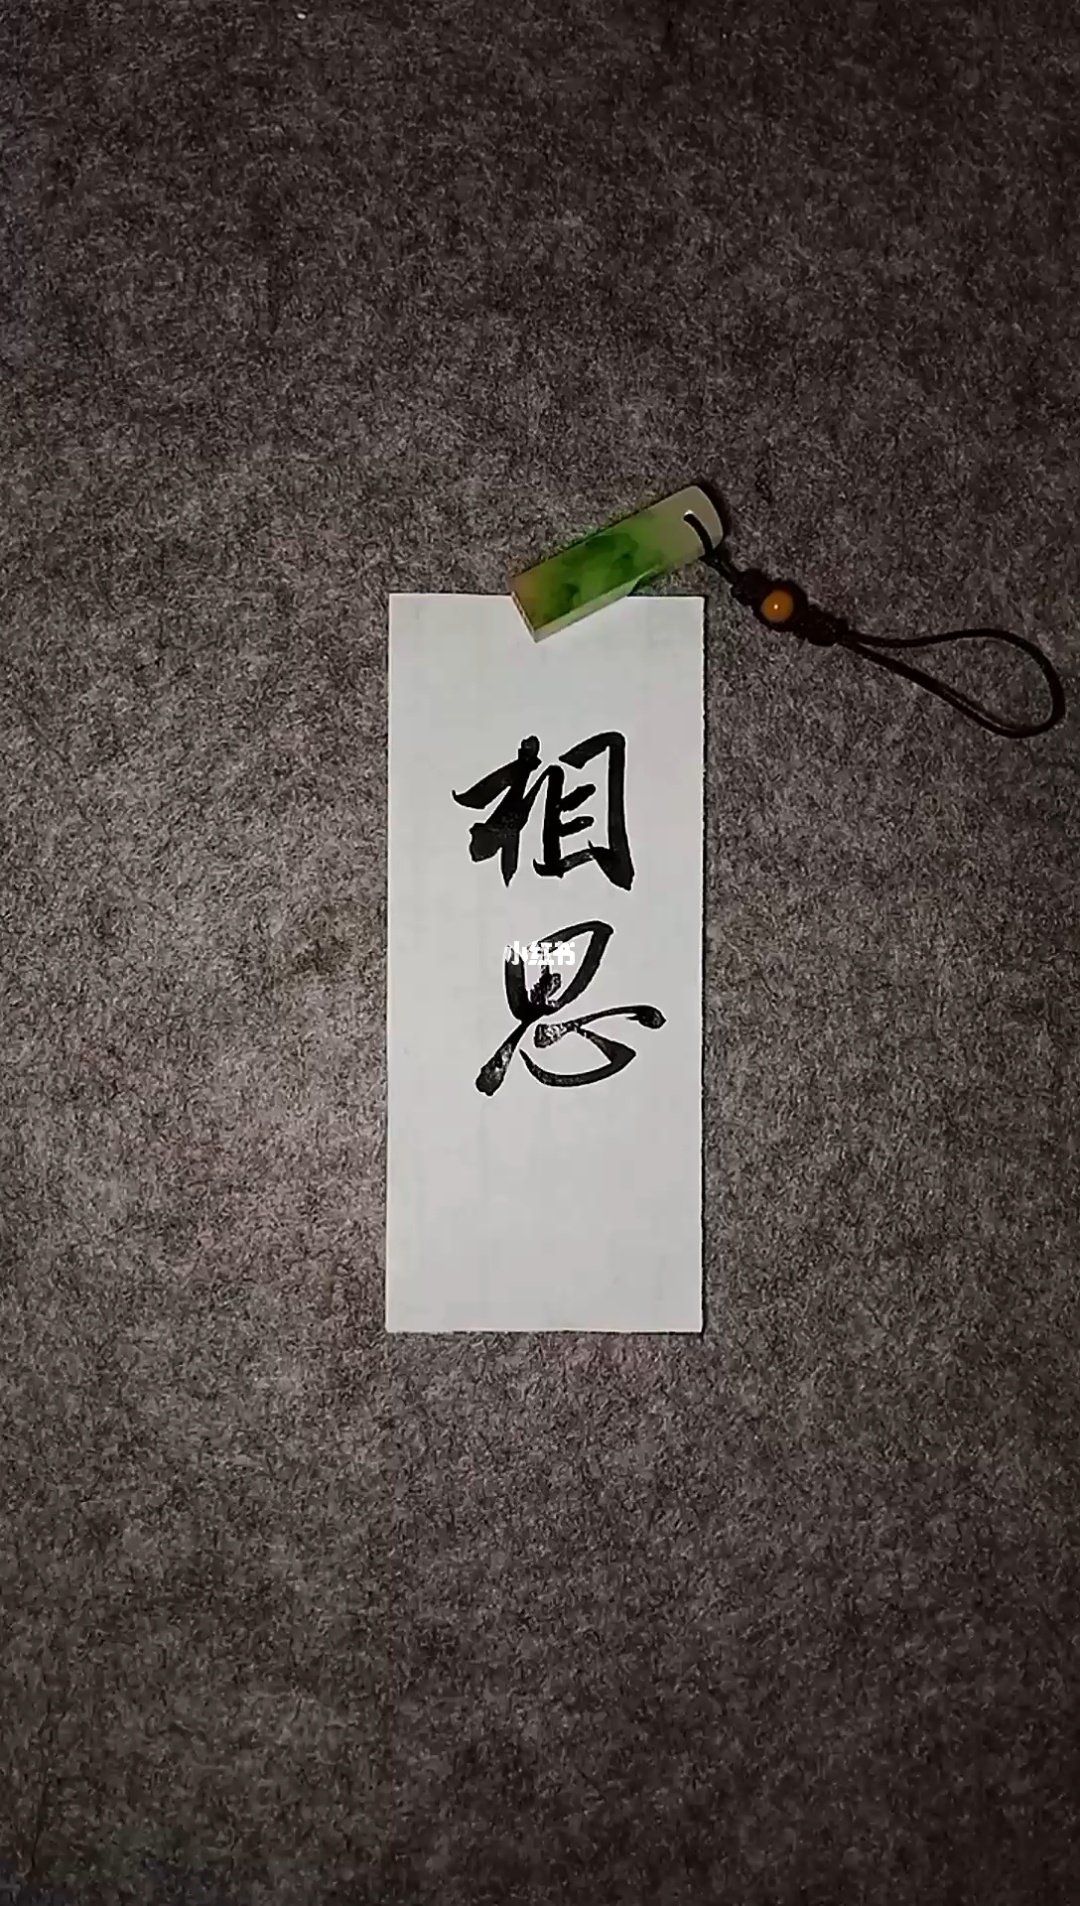 相思
小红书